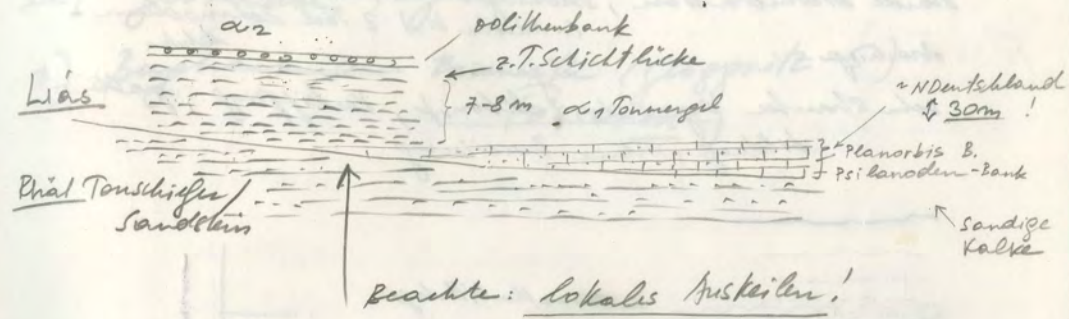 α2
oolithenbank
z.T. Schichtlücke
Lias
7-8 m α1 Tonmergel
~ NDeutschland
30m !
Planorbis B.
Psilanoden-Bank
Rhät Tonschiefer/
Sandstein
Sandige
Kalke
Beachte: lokales Auskeilen!